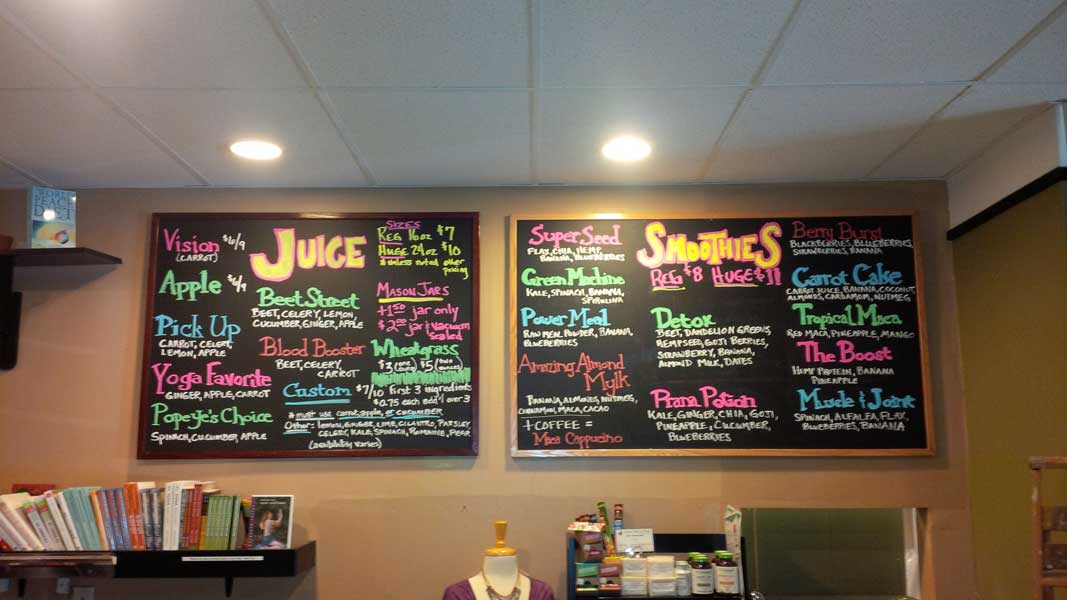 WORLD
PEACE
DIET
JUICE
Vision $6/9
(CARROT)
Apple $6/9
Pick Up
CARROT, CELERY
LEMON, APPLE
Yoga Favorite
GINGER, APPLE, CARROT
Popeye's Choice
SPINACH, CUCUMBER, APPLE
Beet Street
BEET, CELERY, LEMON,
CUCUMBER, GINGER, APPLE
Blood Booster
BEET, CELERY,
CARROT
Custom $7/10 first 3 ingredients
$0.75 each add'l over 3
* must use carrot, apple, or CUCUMBER
Other: lemon, GINGER, LIME, CILANTRO, PARSLEY,
CELERY, KALE, SPINACH, ROMAINE, PEAR
(availability varies)
SIZES
REG 16oz $7
HUGE 24oz $10
* unless noted other
pricing
MASON JARS
+1.50 jar only
$2.00 jar & vacuum
sealed
Wheatgrass
$3 $5
SMOOTHIES
REG $8 HUGE $11
Super Seed
FLAX, CHIA, HEMP,
BANANA, BLUEBERRIES
Green Machine
KALE, SPINACH, BANANA,
SPIRULINA
Power Meal
RAW MEAL POWDER, BANANA,
BLUEBERRIES
Amazing Almond
Mylk
BANANA, ALMONDS, NUTMEG,
CINNAMON, MACA, CACAO
+ COFFEE =
Maca Cappucino
Detox
BEET, DANDELION GREENS,
HEMPSEED, GOJI BERRIES,
STRAWBERRY, BANANA,
ALMOND MILK, DATES
Prana Potion
KALE, GINGER, CHIA, GOJI,
PINEAPPLE, CUCUMBER,
BLUEBERRIES
Berry Burst
BLACKBERRIES, BLUEBERRIES,
STRAWBERRIES, BANANA
Carrot Cake
CARROT JUICE, BANANA, COCONUT,
ALMONDS, CARDAMOM, NUTMEG
Tropical Maca
RED MACA, PINEAPPLE, MANGO
The Boost
HEMP PROTEIN, BANANA
PINEAPPLE
Muscle & Joint
SPINACH, ALFALFA, FLAX,
BLUEBERRIES, BANANA